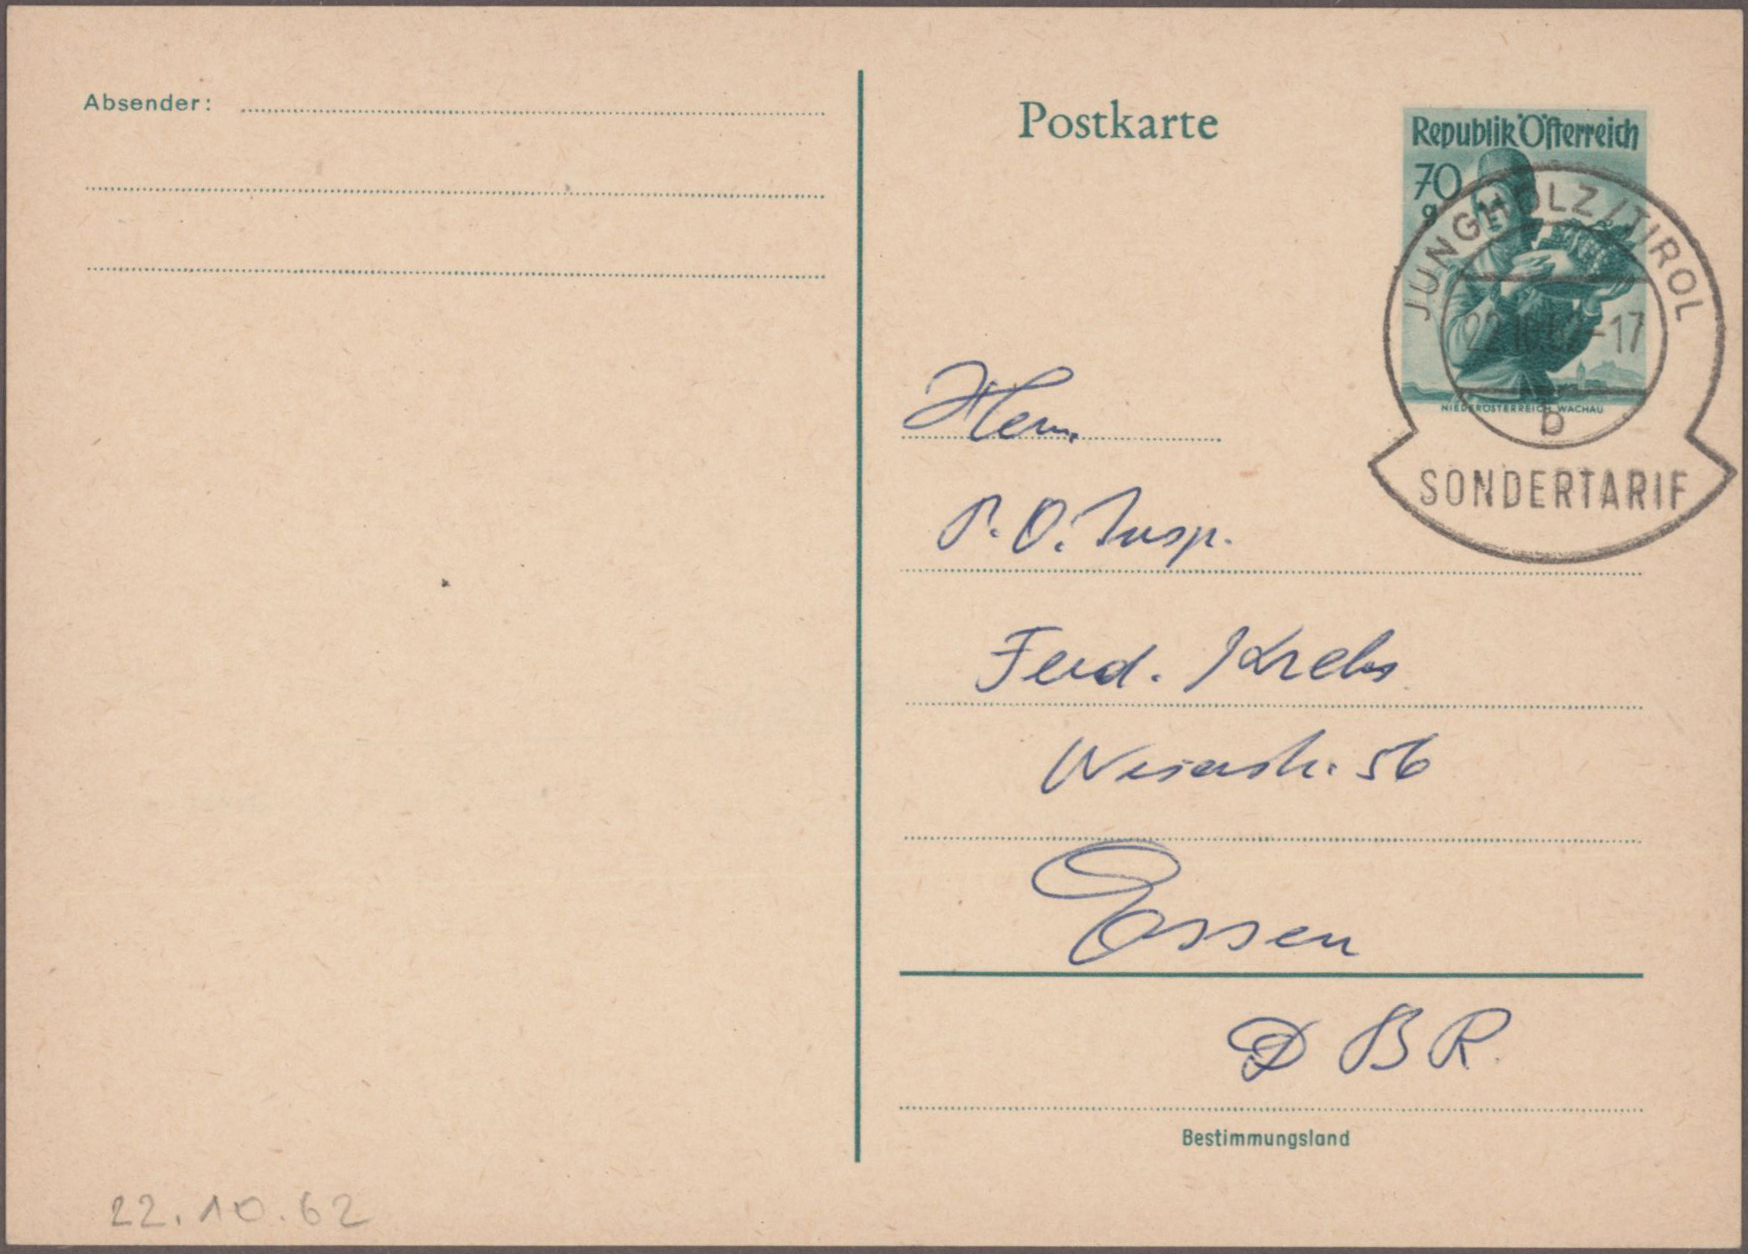 Absender:
Postkarte
Republik Österreich
70
g
NIEDERÖSTERREICH, WACHAU
JUNGHOLZ / TIROL
22.10.62-17
b
SONDERTARIF
Herrn
P. O. Insp.
Ferd. Krebs
Weserstr. 56
Essen
DBR.
Bestimmungsland
22.10.62